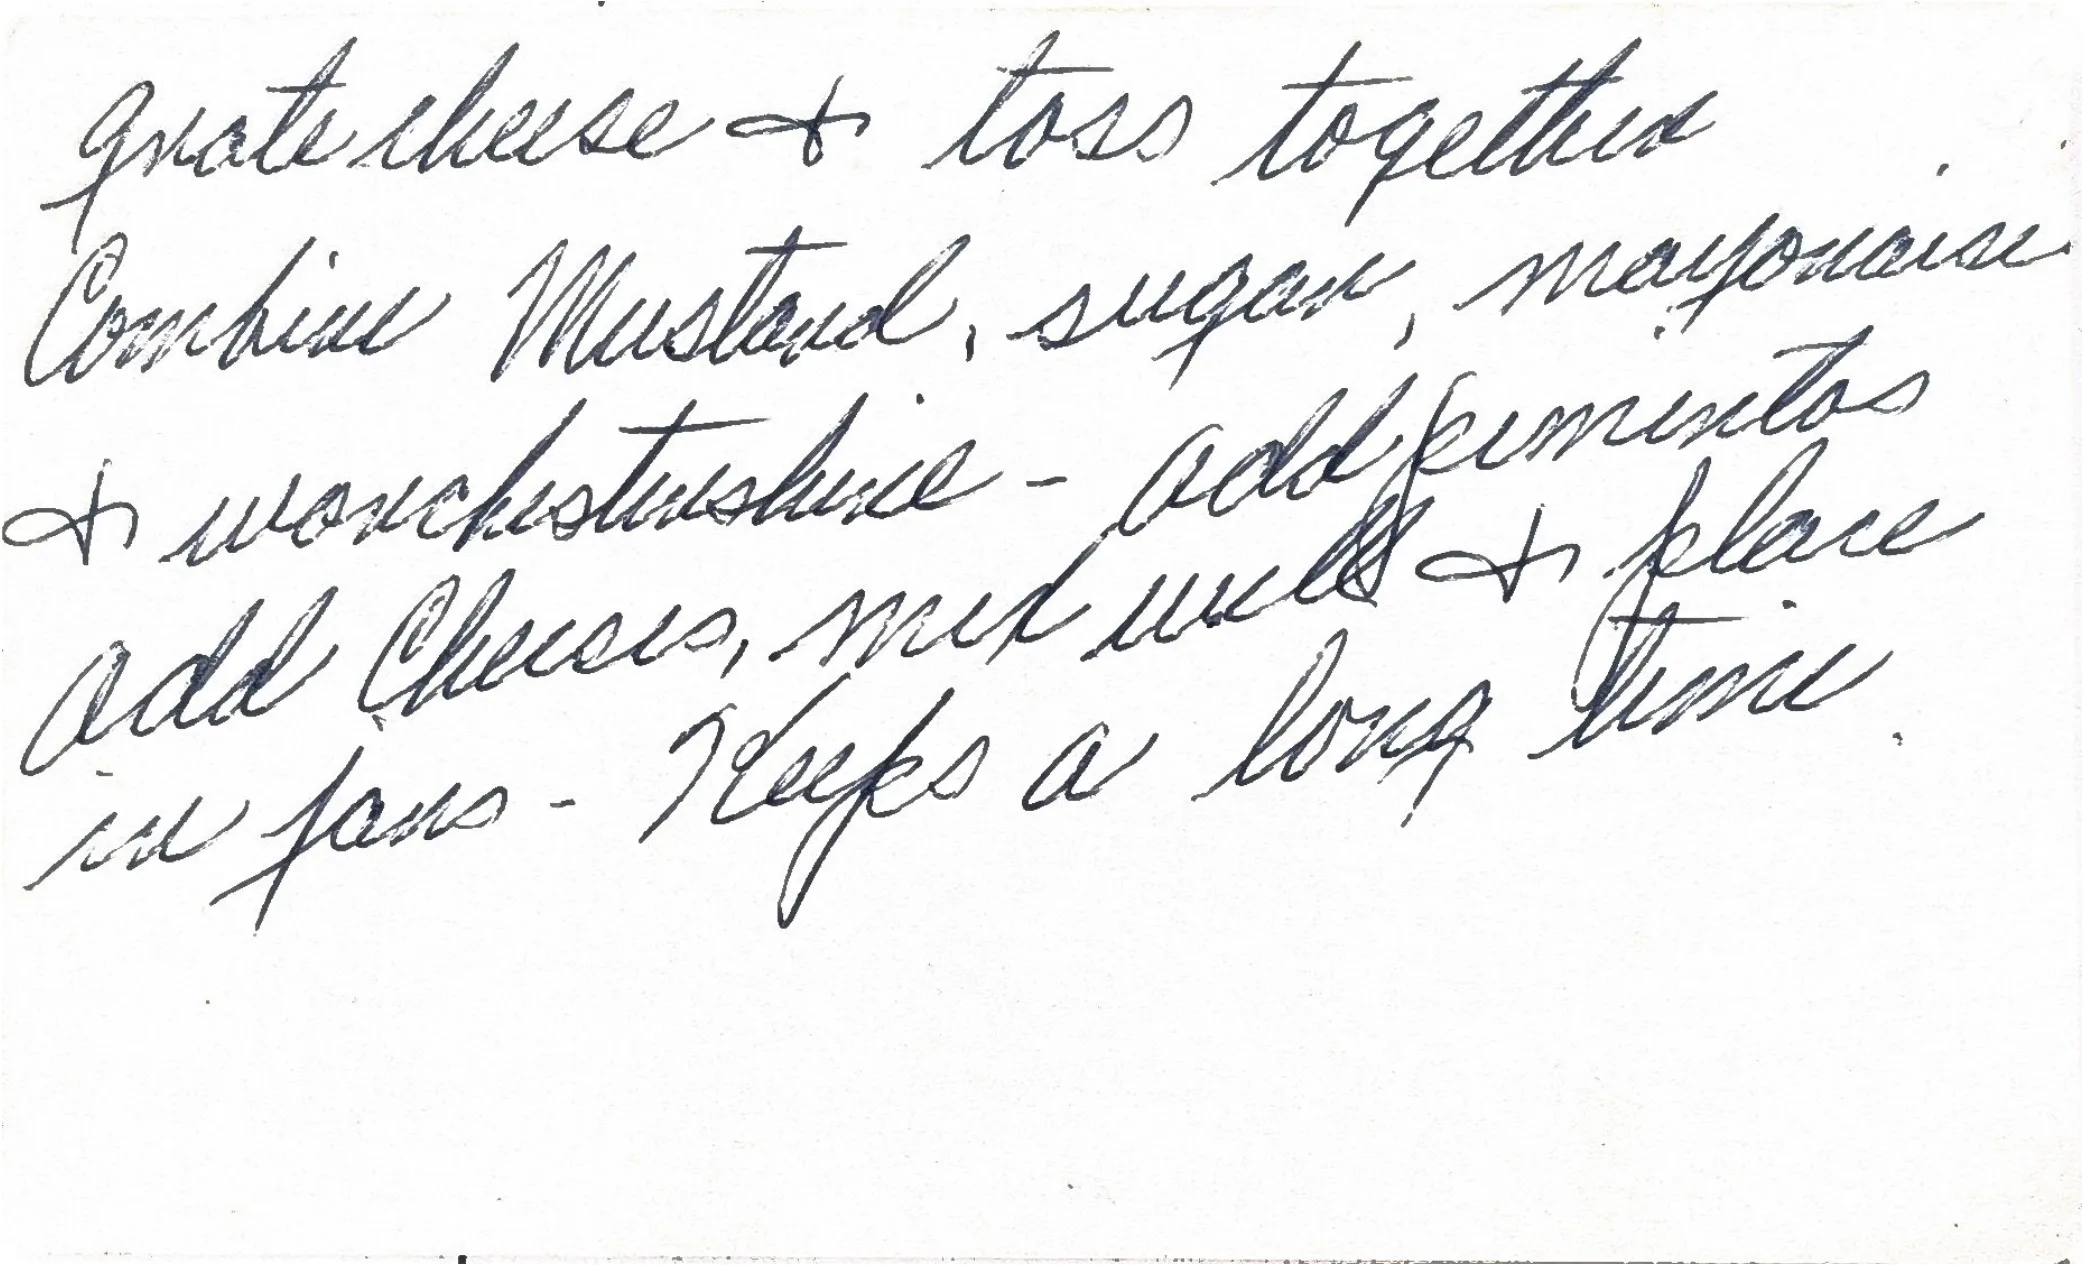 grate cheese & toss together
Combine Mustard, sugar, mayonaise
& worchestershire - add pimentos
add Cheeses, mix well & place
in jars - Keeps a long time.